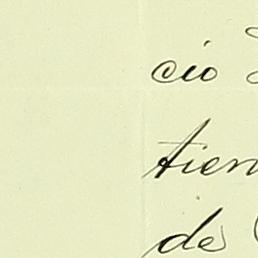 cio
tien
de